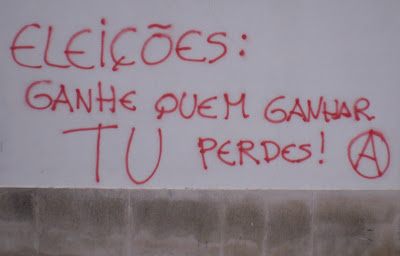 ELEIÇÕES:
GANHE QUEM GANHAR
TU PERDES! Ⓐ